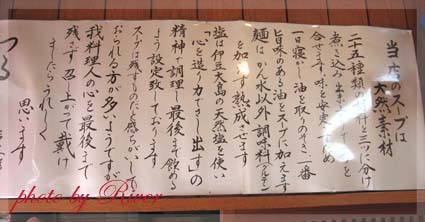 当店のスープは
天然素材
二十五種類の材料と三つに分け
煮き込み
合せます。味を安定
一日寝し油を取りのぞき一番
旨味のあと油とスープに加えます
麺はかん水以外の調味料
を加えず熟成させます
塩は伊豆大島の天然塩を使い
「心を送り力で出す」の
精神で調理し最後まで飲める
よう設定致しております
スープは残すものだと感ちがいして
おられる方が多いようですが
我料理人の心を最後まで
残さず召し上がって戴け
ましたらうれしく
思います
つる
photo by River